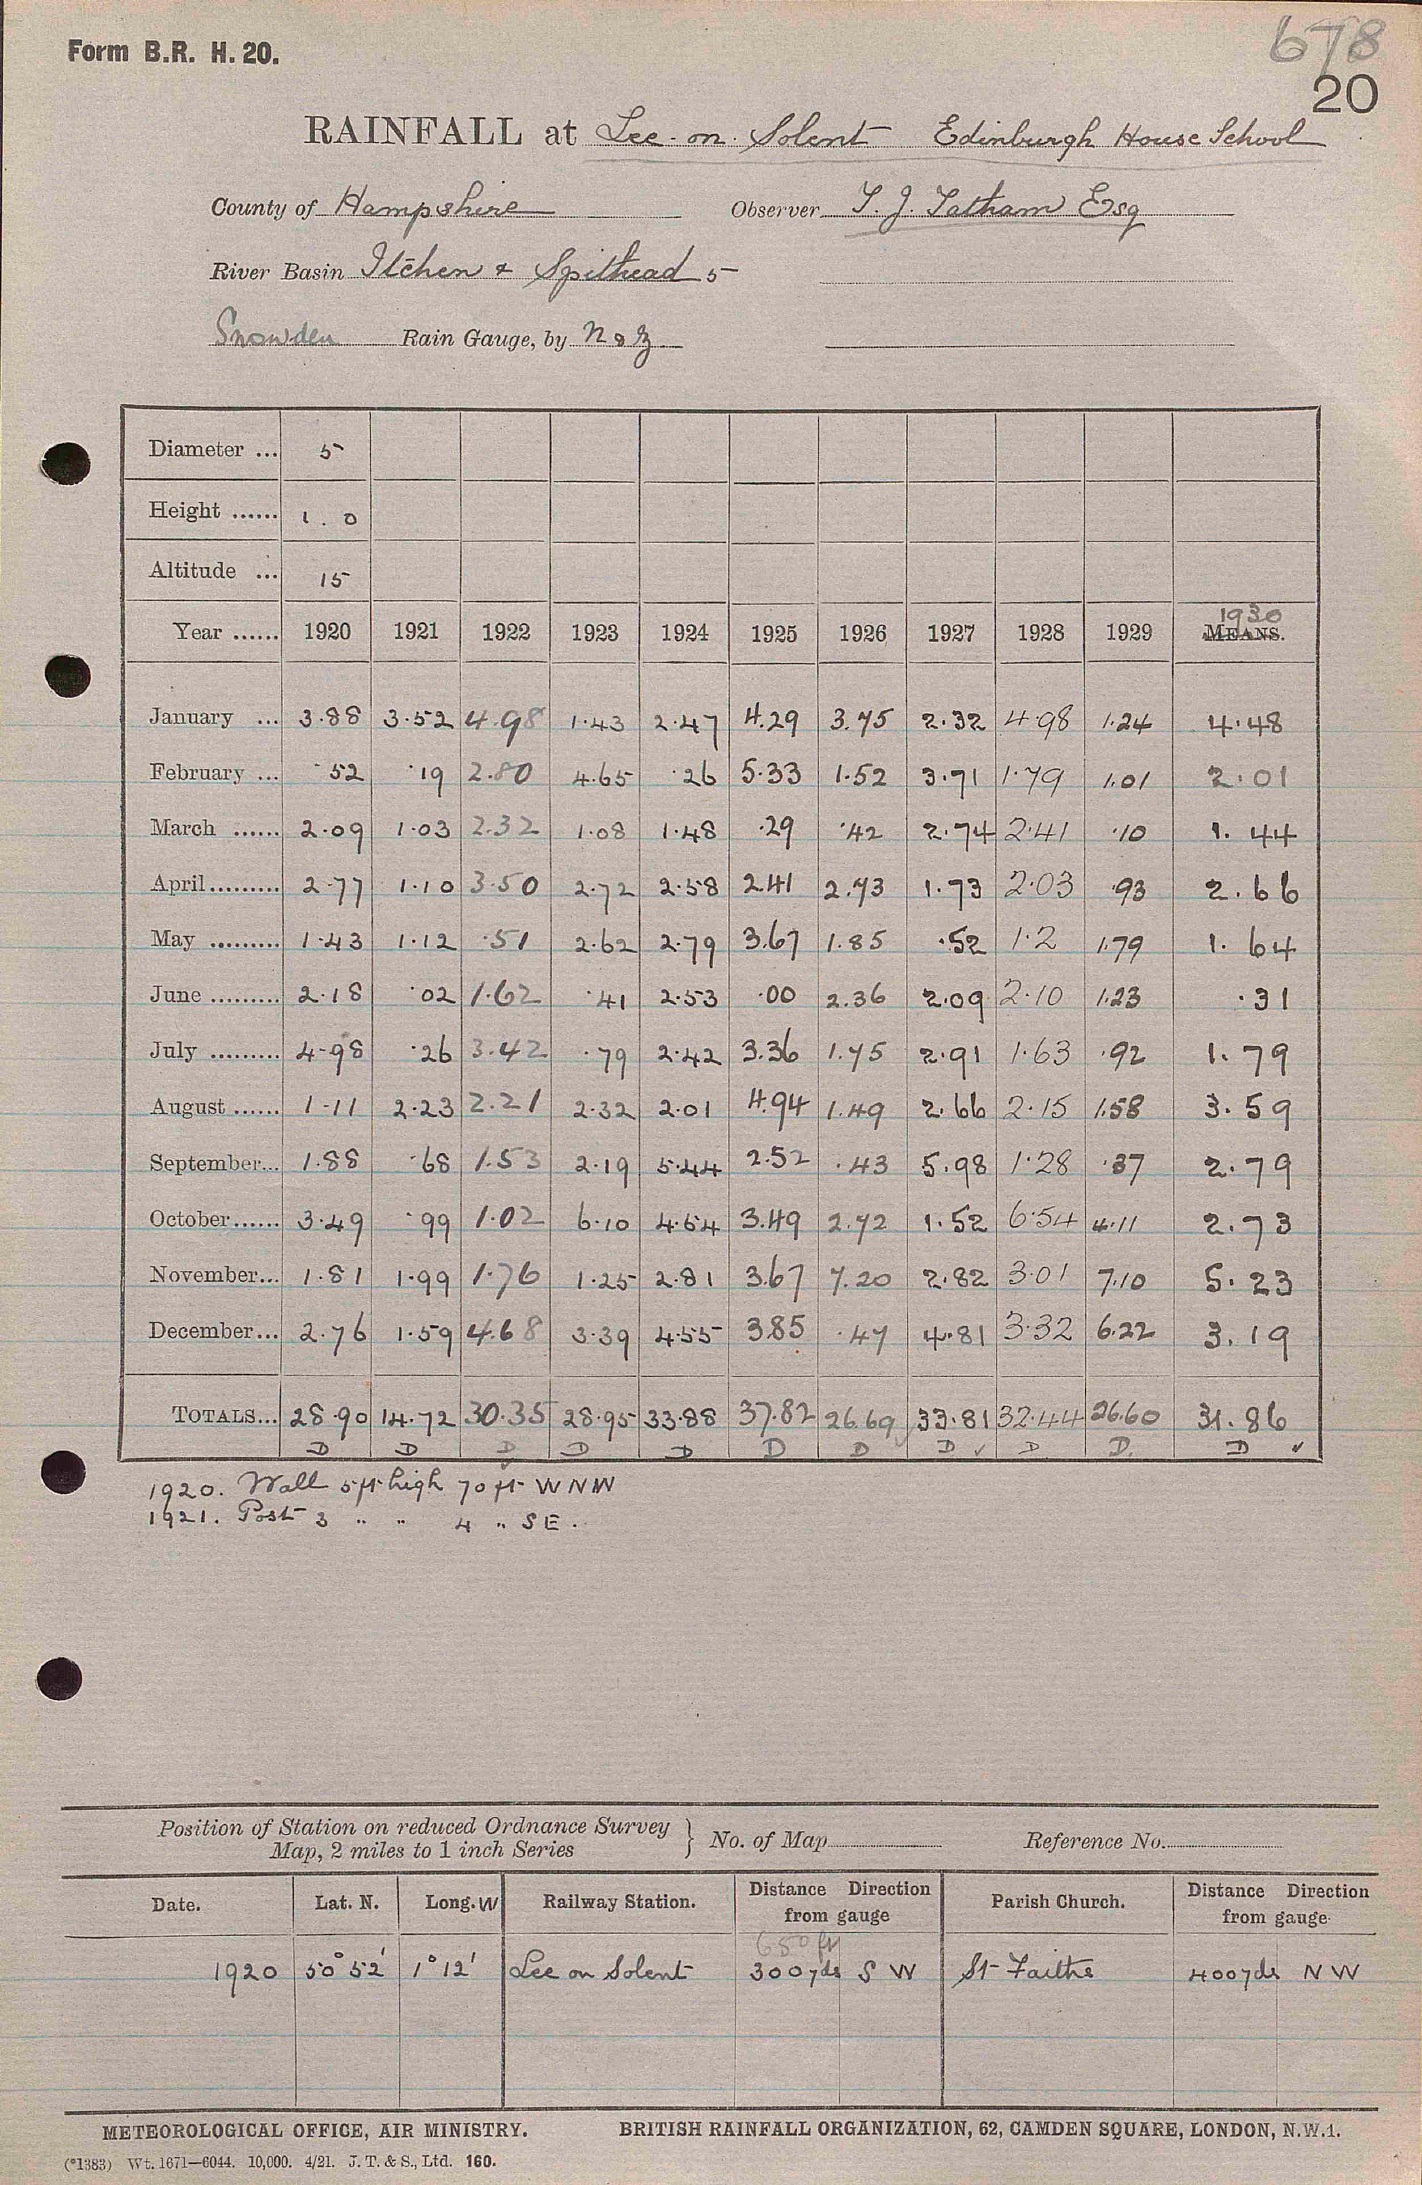 Form B.R. H. 20.
678
20
RAINFALL at Lee-on-Solent Edinburgh House School
County of Hampshire Observer T. J. Tatham Esq
River Basin Itchen & Spithead 5
Snowden Rain Gauge, by N & Z
Diameter ... 5
Height ...... 1.0
Altitude ... 15
Year ...... 1920 1921 1922 1923 1924 1925 1926 1927 1928 1929 1930 MEANS.
January ... 3.88 3.52 4.98 1.43 2.47 4.29 3.75 2.32 4.98 1.24 4.48
February ... .52 .19 2.80 4.65 .26 5.33 1.52 3.71 1.79 1.01 2.01
March ...... 2.09 1.03 2.32 1.08 1.48 .29 .42 2.74 2.41 .10 1.44
April......... 2.77 1.10 3.50 2.72 2.58 2.41 2.73 1.73 2.03 .93 2.66
May ......... 1.43 1.12 .51 2.62 2.79 3.67 1.85 .52 1.2 1.79 1.64
June ......... 2.18 .02 1.62 .41 2.53 .00 2.36 2.09 2.10 1.23 .31
July ......... 4.98 .26 3.42 .79 2.42 3.36 1.75 2.91 1.63 .92 1.79
August ...... 1.11 2.23 2.21 2.32 2.01 4.94 1.49 2.66 2.15 1.58 3.59
September... 1.88 .68 1.53 2.19 5.44 2.52 .43 5.98 1.28 .37 2.79
October...... 3.49 .99 1.02 6.10 4.64 3.49 2.72 1.52 6.54 4.11 2.73
November... 1.81 1.99 1.76 1.25 2.81 3.67 7.20 2.82 3.01 7.10 5.23
December... 2.76 1.59 4.68 3.39 4.55 3.85 .47 4.81 3.32 6.22 3.19
TOTALS... 28.90 14.72 30.35 28.95 33.88 37.82 26.69 33.81 32.44 26.60 31.86
D D D D D D D D ✓ D D. D ✓
1920. Wall 5 ft high 70 ft WNW
1921. Post 3 " " 4 " SE.
Position of Station on reduced Ordnance Survey
Map, 2 miles to 1 inch Series } No. of Map Reference No.
Date. Lat. N. Long. W Railway Station. Distance Direction from gauge Parish Church. Distance Direction from gauge
650 ft
1920 50° 52' 1° 12' Lee on Solent 300 yds S W St Faiths 400 yds N W
METEOROLOGICAL OFFICE, AIR MINISTRY. BRITISH RAINFALL ORGANIZATION, 62, CAMDEN SQUARE, LONDON, N.W.1.
(*1383) Wt. 1671—6044. 10,000. 4/21. J. T. & S., Ltd. 160.